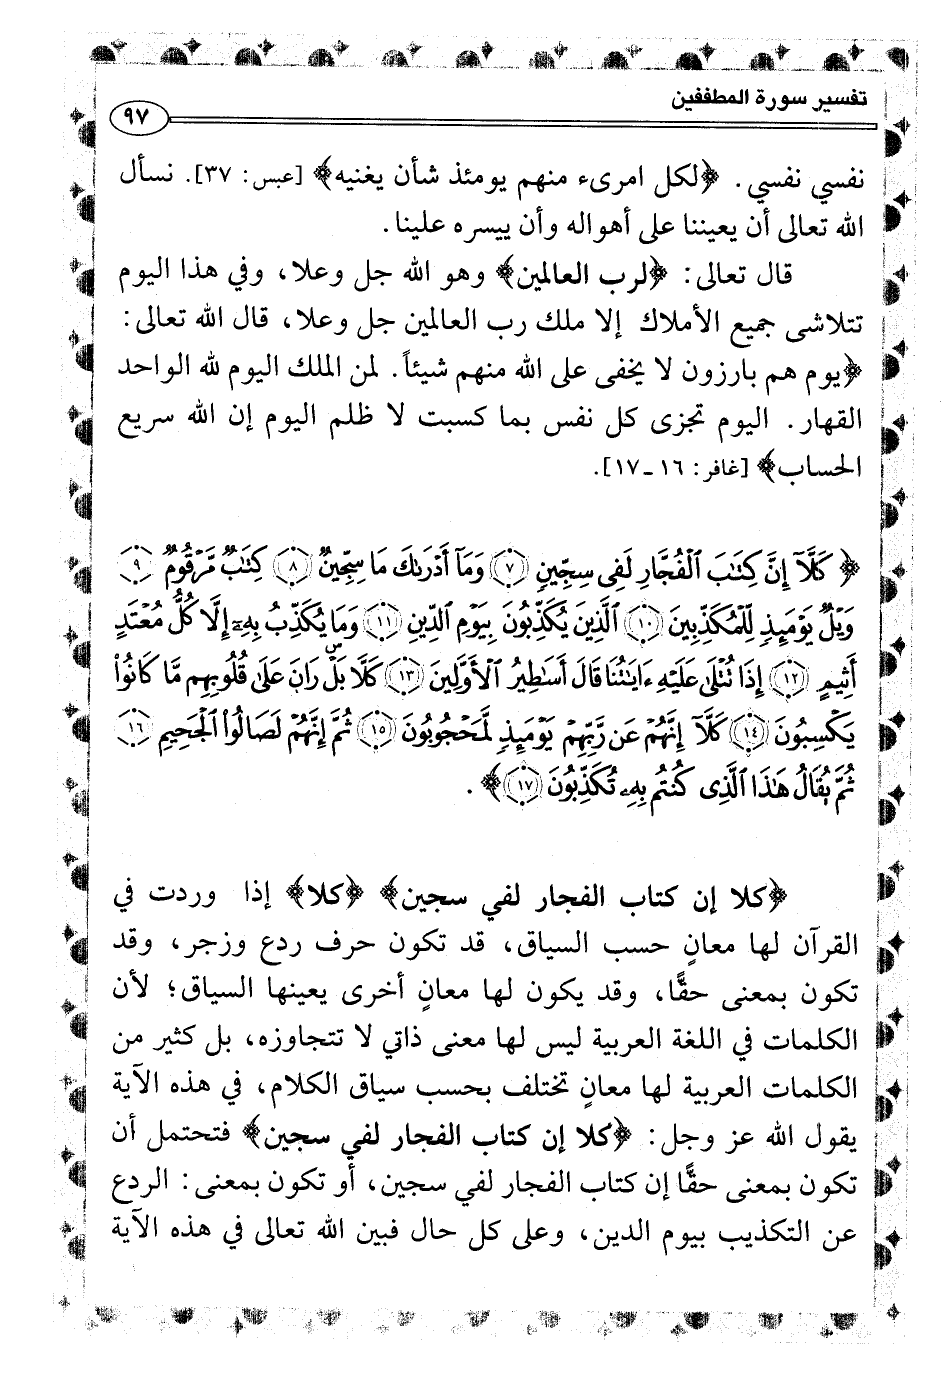 تفسير سورة المطففين
٩٧
نفسي نفسي. ﴿لكل امرىء منهم يومئذ شأن يغنيه﴾ [عبس: ٣٧]. نسأل
الله تعالى أن يعيننا على أهواله وأن ييسره علينا.
قال تعالى: ﴿لرب العالمين﴾ وهو الله جل وعلا، وفي هذا اليوم
تتلاشى جميع الأملاك إلا ملك رب العالمين جل وعلا، قال الله تعالى:
﴿يوم هم بارزون لا يخفى على الله منهم شيئاً. لمن الملك اليوم لله الواحد
القهار. اليوم تجزى كل نفس بما كسبت لا ظلم اليوم إن الله سريع
الحساب﴾ [غافر: ١٦ ـ ١٧].
﴿كَلَّآ إِنَّ كِتَٰبَ ٱلْفُجَّارِ لَفِى سِجِّينٍ ٧ وَمَآ أَدْرَىٰكَ مَا سِجِّينٌ ٨ كِتَٰبٌ مَّرْقُومٌ ٩
وَيْلٌ يَوْمَئِذٍ لِّلْمُكَذِّبِينَ ١٠ ٱلَّذِينَ يُكَذِّبُونَ بِيَوْمِ ٱلدِّينِ ١١ وَمَا يُكَذِّبُ بِهِۦٓ إِلَّا كُلُّ مُعْتَدٍ
أَثِيمٍ ١٢ إِذَا تُتْلَىٰ عَلَيْهِ ءَايَٰتُنَا قَالَ أَسَٰطِيرُ ٱلْأَوَّلِينَ ١٣ كَلَّا بَلْ ۜ رَانَ عَلَىٰ قُلُوبِهِم مَّا كَانُوا۟
يَكْسِبُونَ ١٤ كَلَّآ إِنَّهُمْ عَن رَّبِّهِمْ يَوْمَئِذٍ لَّمَحْجُوبُونَ ١٥ ثُمَّ إِنَّهُمْ لَصَالُوا۟ ٱلْجَحِيمِ ١٦
ثُمَّ يُقَالُ هَٰذَا ٱلَّذِى كُنتُم بِهِۦ تُكَذِّبُونَ ١٧﴾.
﴿كلا إن كتاب الفجار لفي سجين﴾ ﴿كلا﴾ إذا وردت في
القرآن لها معانٍ حسب السياق، قد تكون حرف ردع وزجر، وقد
تكون بمعنى حقًّا، وقد يكون لها معانٍ أخرى يعينها السياق؛ لأن
الكلمات في اللغة العربية ليس لها معنى ذاتي لا تتجاوزه، بل كثير من
الكلمات العربية لها معانٍ تختلف بحسب سياق الكلام، في هذه الآية
يقول الله عز وجل: ﴿كلا إن كتاب الفجار لفي سجين﴾ فتحتمل أن
تكون بمعنى حقًّا إن كتاب الفجار لفي سجين، أو تكون بمعنى: الردع
عن التكذيب بيوم الدين، وعلى كل حال فبين الله تعالى في هذه الآية